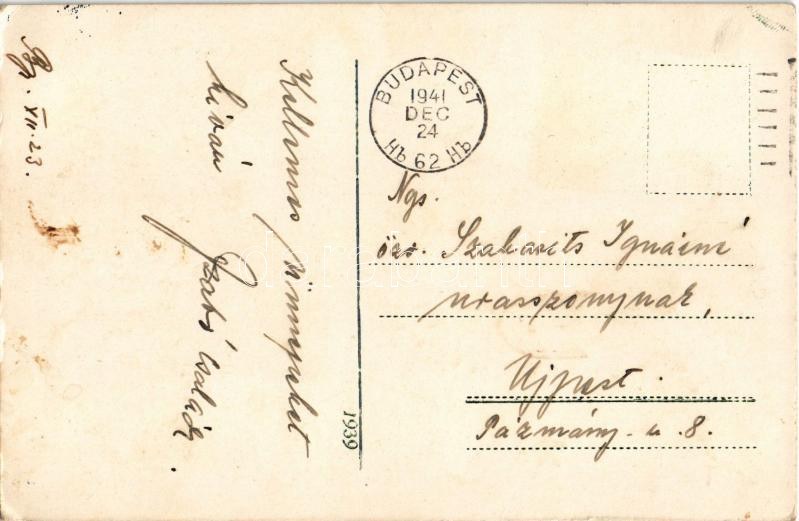 Bp. XII. 23.
Kellemes ünnepeket
kíván
Szabó család.
1939
BUDAPEST
1941
DEC
24
Hb 62 Hb
Ngs.
özv. Szabasits Ignácné
urasszonynak,
Ujpest.
Pázmány-u. 8.